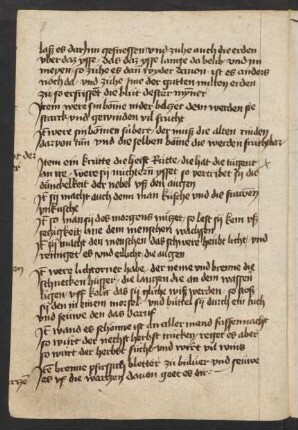 laß es dar Inn gefriessen vnd zuhe auch die erden
vber daz ysse das daz ysse lange da belib vnd im
meyen so zuhe es dan wyder davon ist es anders
noch da vnd zuhe Im der gutten milten erden
zu so erfriset die blüt dester mynner
Item wer sin böme nider beltzet dem werden sie
starck vnd gewinden vil frucht
It wer sin böumen subert der muß die alten rinden
dar von tun vnd die selben böme die werden fruchtbar
Item ein krutte die heist Rutte die hat die tugent
an Ir wer sü nuchtern ysset so vertribet sü die
dunckelheit der nebel vß den augen
It sü macht auch dem man küsche vnd die frauwen
vnküsche
It so man sü des morgens nützet so lest sü kein
in dem menschen wachssen
It sü macht den menschen das schwere heubt licht vnd
reiniget es vnd erlucht die augen
It wer lichtorner habe der neme vnd brenne die
schnecken hüser die langen die an dem wasser
ligen vff koln das sü glich wiß werden so stoß
sü den in einem morsel vnd büttel sü durch ein tuch
vnd seuwe den das daruff
It wand es schönne ist an aller mand fassennacht
so würt der nechst herbst trucken reget es aber
so würt der herbst fücht vnd würt vil wins
It brenne pfirssich bletter zu buluer vnd seuwe
es vff die wartzen davon geet es dir